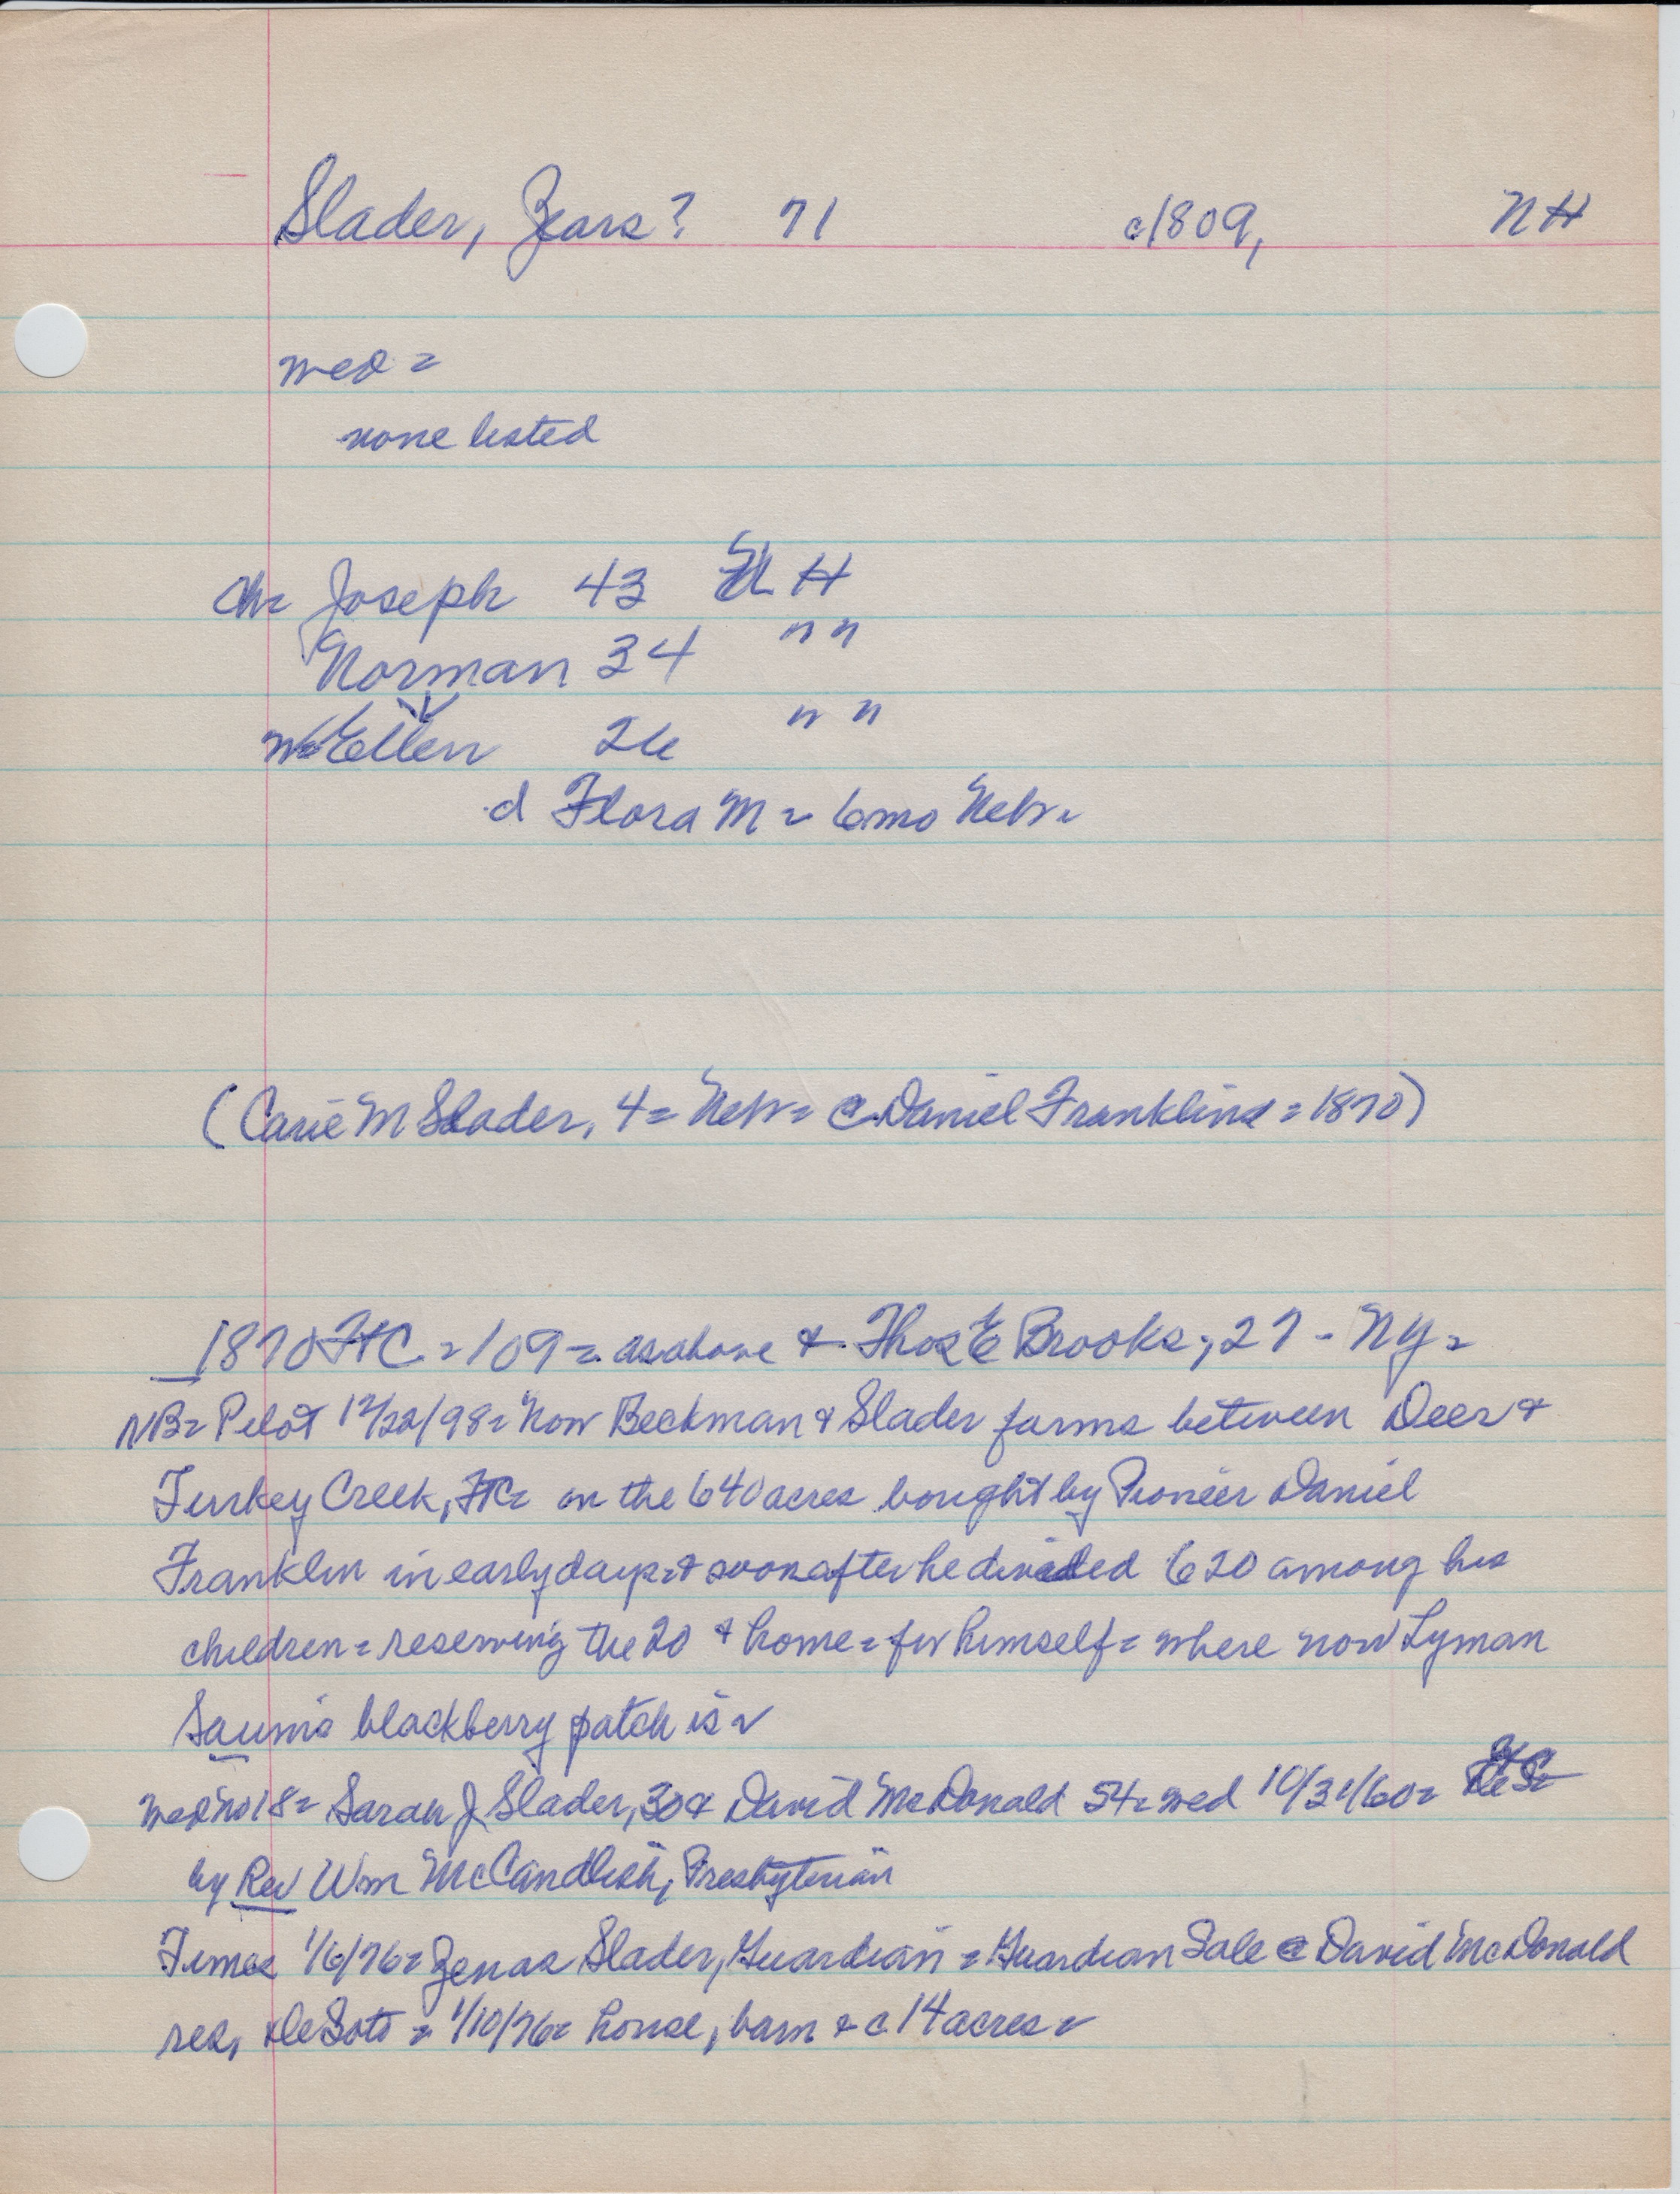 Slader, Zears? 71 c1809, NH
wed =
none listed
ch= Joseph 43 NH
Norman 34 " "
w= Ellen 26 " "
d Flora M = 6mo Nebr =
(Carie M Slader, 4 = Nebr = @ Daniel Franklins = 1870)
1870 FtC = 109 = as above & Thos E Brooks, 27 - NY =
NB= Pilot 12/22/98= Now Beckman & Slader farms between Deer &
Turkey Creek, FtC= on the 640 acres bought by Pioneer Daniel
Franklin in early days & soon after he divided 620 among his
children = reserving the 20 & home = for himself = where now Lyman
Saums blackberry patch is =
Wed No 18= Sarah J Slader, 30 & David McDonald 54= wed 10/31/60=
by Rev Wm McCandlish, Presbyterian
Times 1/6/76= Zenas Slader, Guardian = Guardian Sale @ David McDonald
res, DeSoto = 1/10/76= house, barn & c 14 acres =